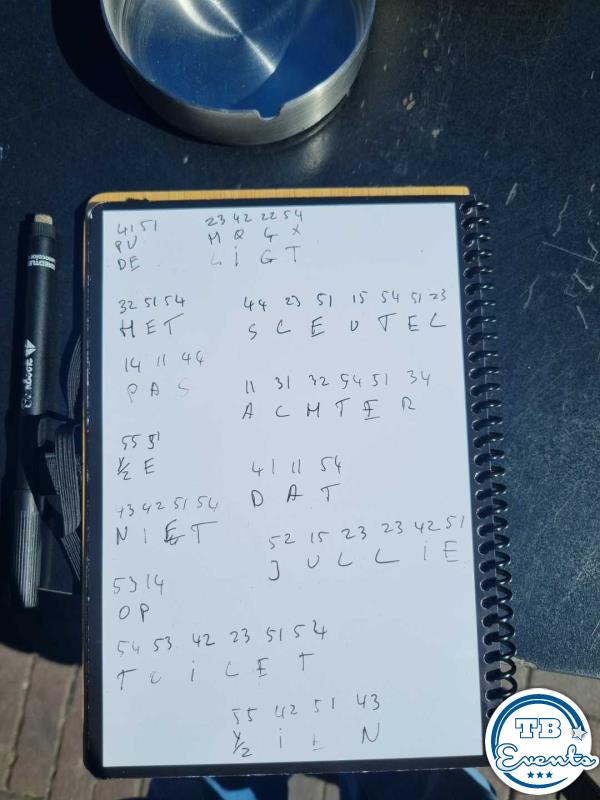 41 51 23 42 22 54
PU M Q G X
DE L i G T
32 51 54 44 23 51 15 54 51 23
H E T S L E U T E L
14 11 44
P A S 11 31 32 54 51 34
A C H T E R
55 51
Y/Z E 41 11 54
D A T
43 42 51 54
N I E T 52 15 23 23 42 51
J U L L i E
53 14
O P
54 53 42 23 51 54
T O i L E T
55 42 51 43
Y/Z i E N
TB
Events